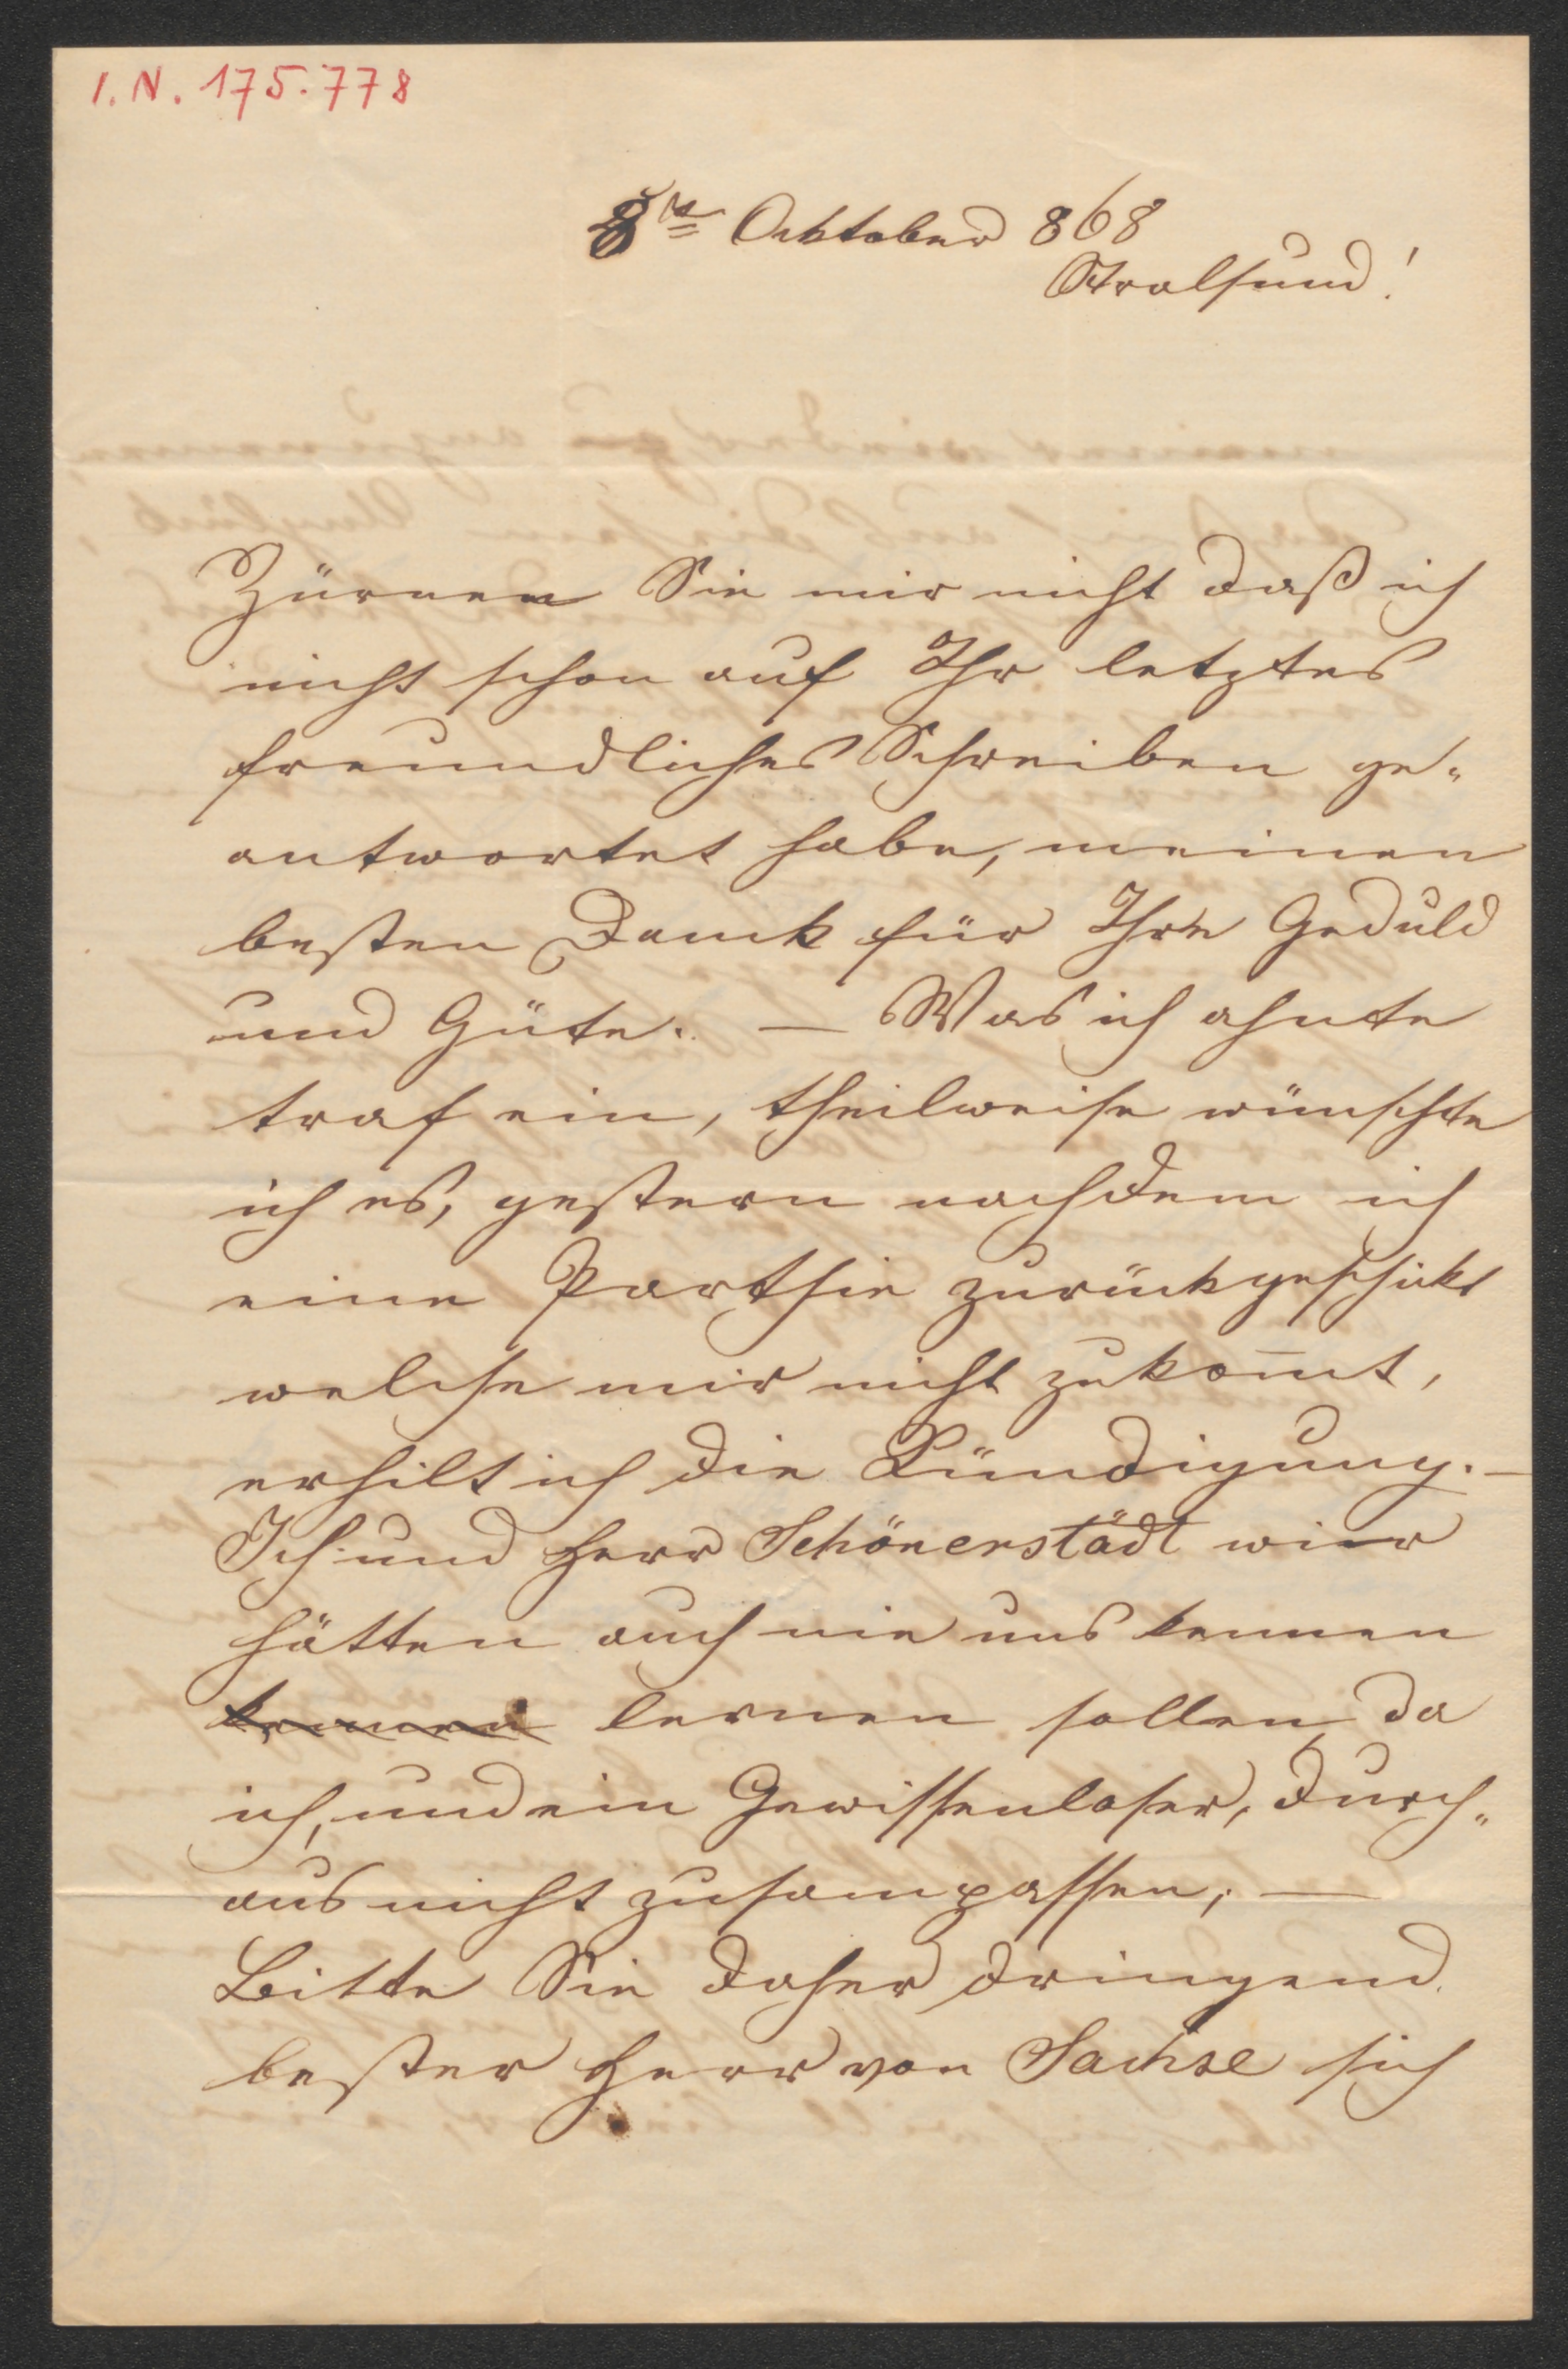 I. N. 175.778
8te Ocktober 868
Stralsund!
Zürnen Sie mir nicht daß ich
nicht schon auf Ihr letztes
freundliches Schreiben ge-
antwortet habe, meinen
besten Danck für Ihre Geduld
und Güte. — Was ich ahnte
traf ein, theilweise wünschte
ich es, gestern nachdem ich
eine Parthie zurückgeschickt
welche mir nicht zukom̅t,
erhilt ich die Kündigung. —
Ich und Herr Schönerstädt wier
hätten auch nie uns kennen
kennen lernen sollen, da
ich, und ein Gewissenloser, durch-
aus nicht zusampassen, —
Bitte Sie daher dringend
bester Herr von Sachse sich